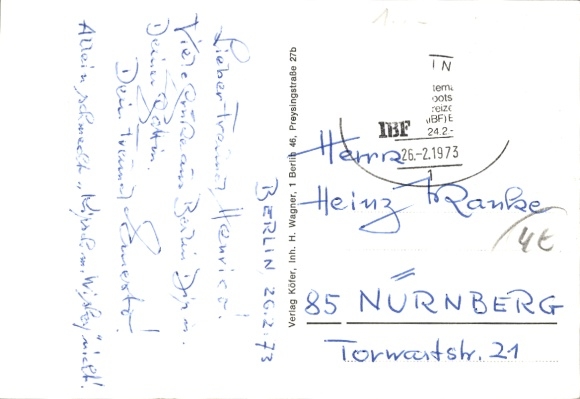 BERLIN, 26.2.73
Lieber Trauner Henrico!
Viele Grüße aus Berlin Dir u.
Deiner Göttin.
Dein Trauner
Allein schmeckt „ m. Wisky" nicht!
Verlag Köfer, Inh. H. Wagner, 1 Berlin 46, Preysingstraße 27b
IN
IBF
24.2.-
26.-2.1973
1
Herrn
Heinz Ranke
4€
85 NÜRNBERG
Torwartstr. 21